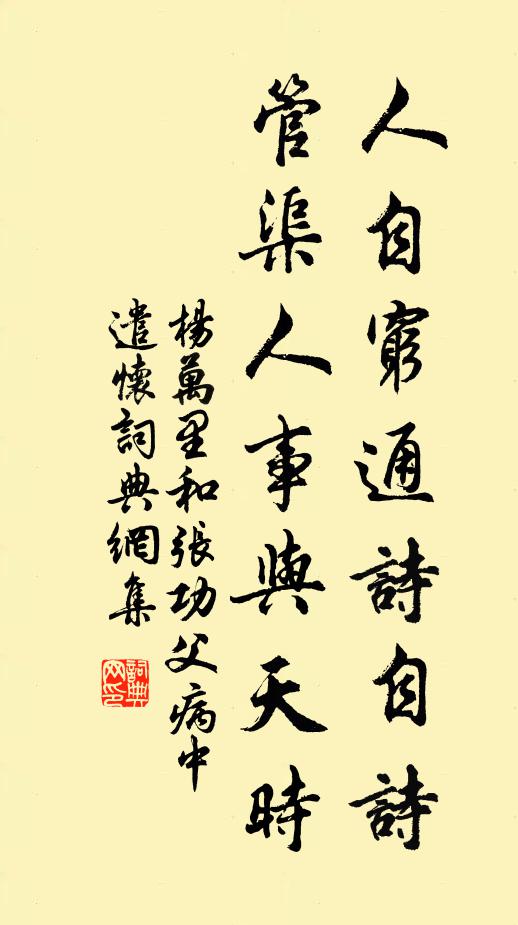 人自窮通詩自詩
管渠人事與天時
楊萬里和張功父病中
遣懷詞典網集
詞典网印